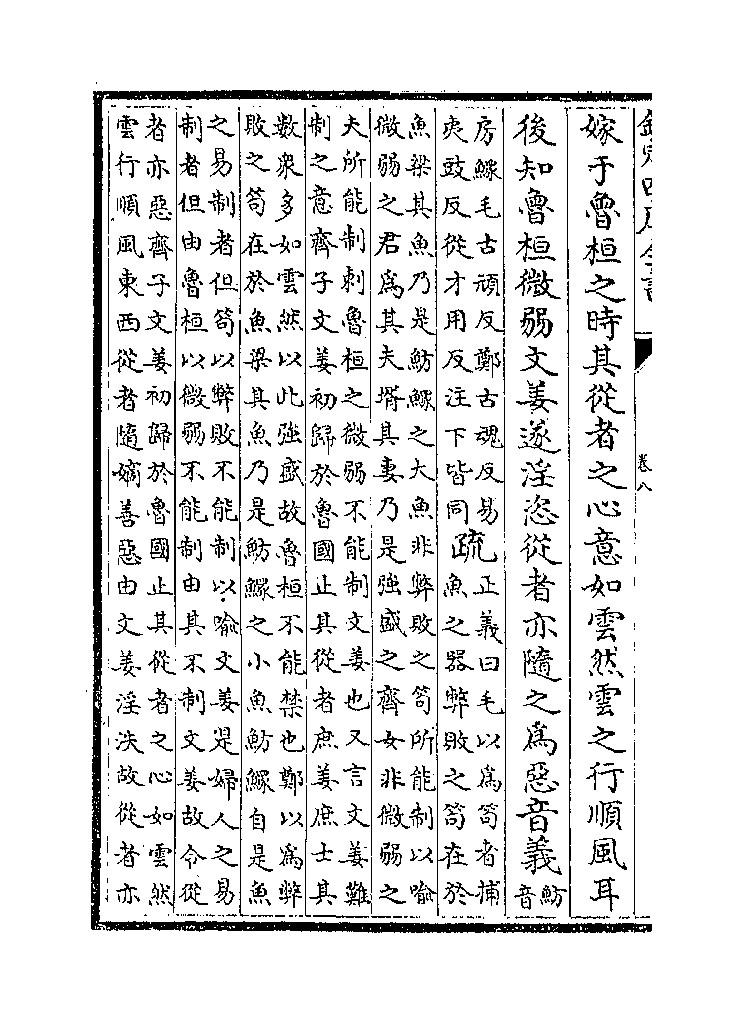 欽定四庫全書 卷八
嫁于魯桓之時其從者之心意如雲然雲之行順風耳
後知魯桓微弱文姜遂淫恣從者亦隨之為惡音義魴音
房鰥毛古頑反鄭古魂反易
夷豉反從才用反注下皆同
疏
正義曰毛以為笱者捕
魚之器弊敗之笱在於
魚梁其魚乃是魴鰥之大魚非弊敗之笱所能制以喻
微弱之君為其夫壻其妻乃是強盛之齊女非微弱之
夫所能制刺魯桓之微弱不能制文姜也又言文姜難
制之意齊子文姜初歸於魯國止其從者庶姜庶士其
數衆多如雲然以此強盛故魯桓不能禁也鄭以為弊
敗之笱在於魚梁其魚乃是魴鰥之小魚魴鰥自是魚
之易制者但笱以弊敗不能制以喻文姜是婦人之易
制者但由魯桓以微弱不能制由其不制文姜故令從
者亦惡齊子文姜初歸於魯國止其從者之心如雲然
雲行順風東西從者隨嫡善惡由文姜淫泆故從者亦